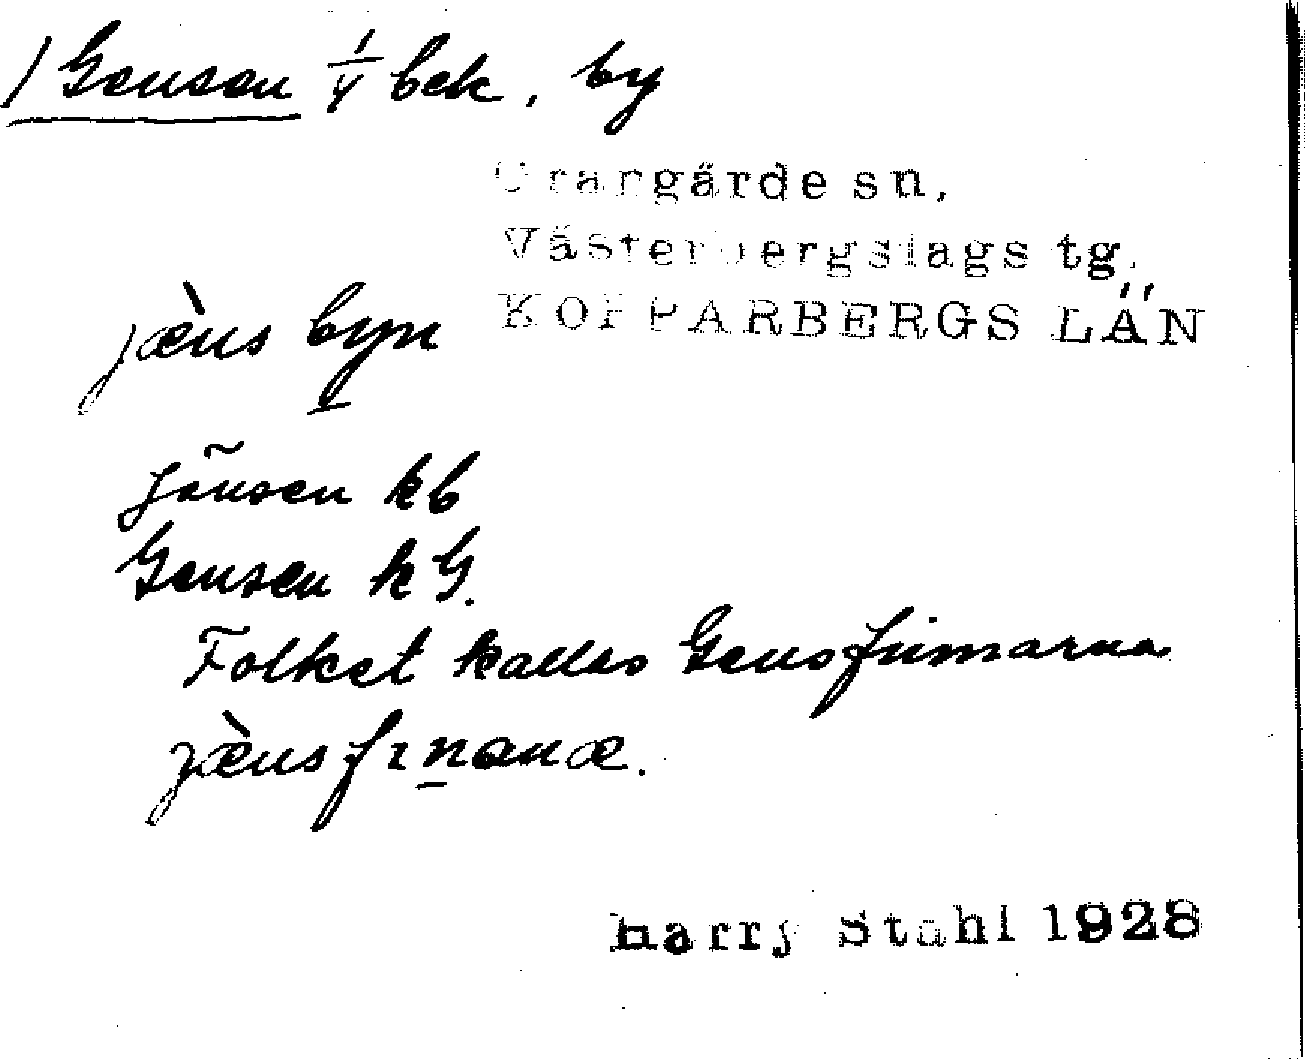 / Gensen 1/4 bek, by
Grangärde sn,
Västerbergslags tg.
KOPPARBERGS LÄN
jæ̀ns byn
Jönsen kb
Gensen k G.
Folket kallas Gensfinnarna
jæ̀nsfɪnanæ.
Harry Ståhl 1928